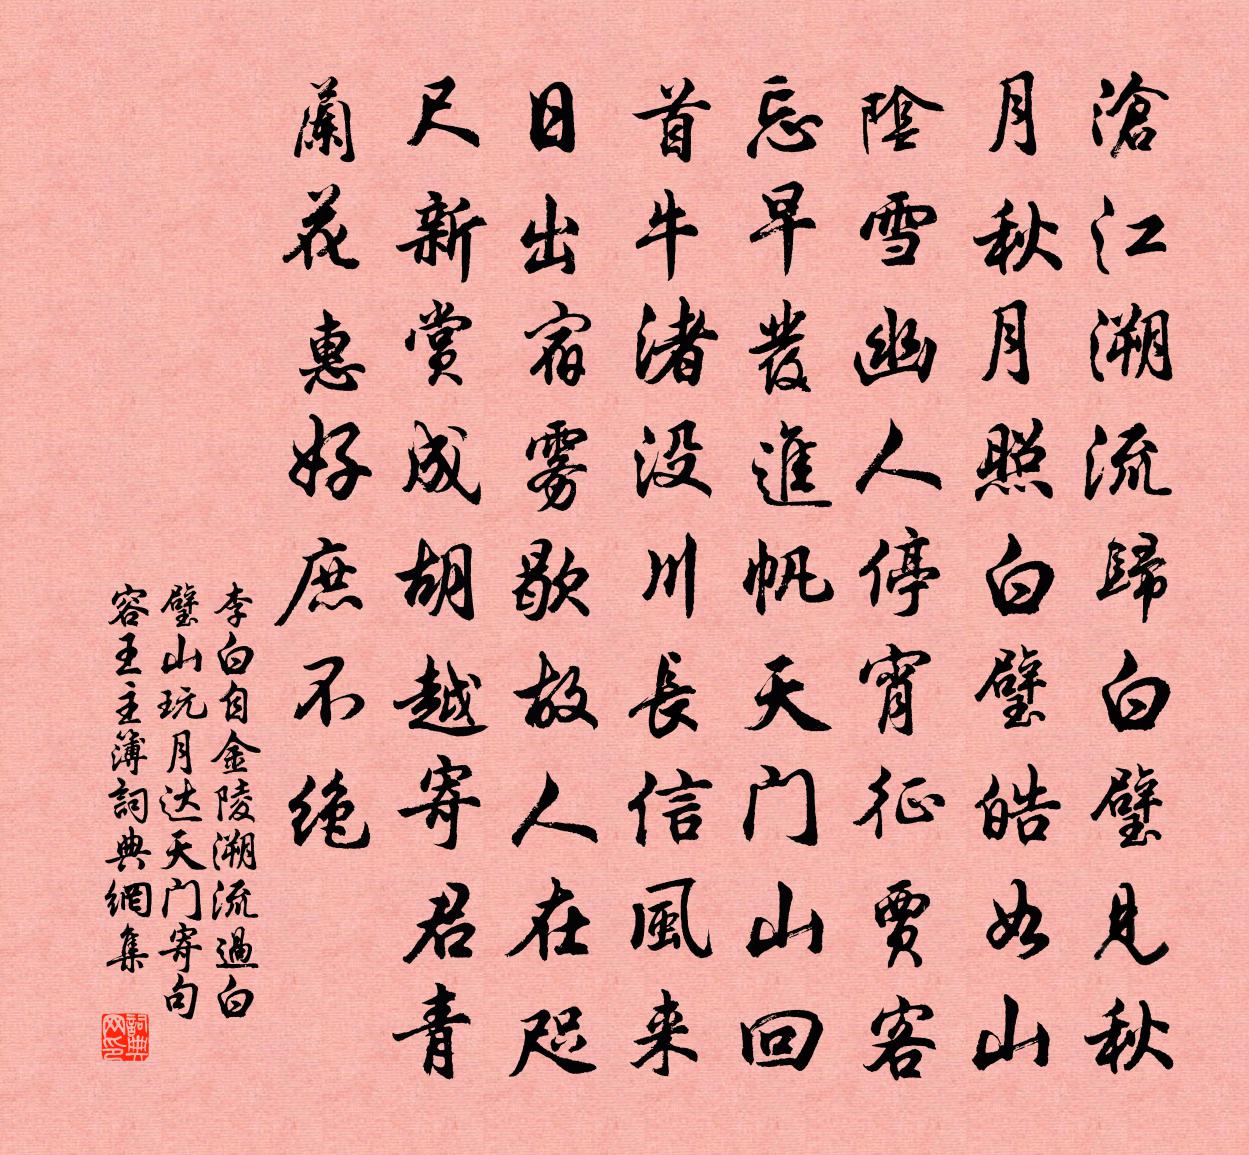 滄江溯流歸白璧見秋
月秋月照白璧皓如山
陰雪幽人停宵征賈客
忘早發進帆天门山回
首牛渚没川長信風来
日出宿雾歇故人在咫
尺新赏成胡越寄君青
蘭花惠好庶不绝
李白自金陵溯流過白
璧山玩月达天门寄句
容王主簿詞典網集
詞典网印